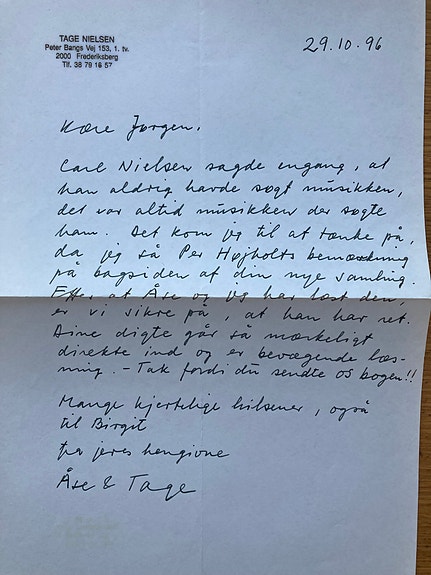 TAGE NIELSEN
Peter Bangs Vej 153, 1. tv.
2000 Frederiksberg
Tlf. 38 79 16 57
29.10.96
Kære Jørgen.
Carl Nielsen sagde engang, at
han aldrig havde søgt musikken,
det var altid musikken der søgte
ham. Det kom jeg til at tænke på,
da jeg så Per Højholts bemærkning
på bagsiden af din nye samling.
Efter at Åse og jeg har læst den,
er vi sikre på, at han har ret.
Dine digte går så mærkeligt
direkte ind og er bevægende læs-
ning. – Tak fordi du sendte os bogen!!
Mange hjertelige hilsener, også
til Birgit
fra jeres hengivne
Åse & Tage